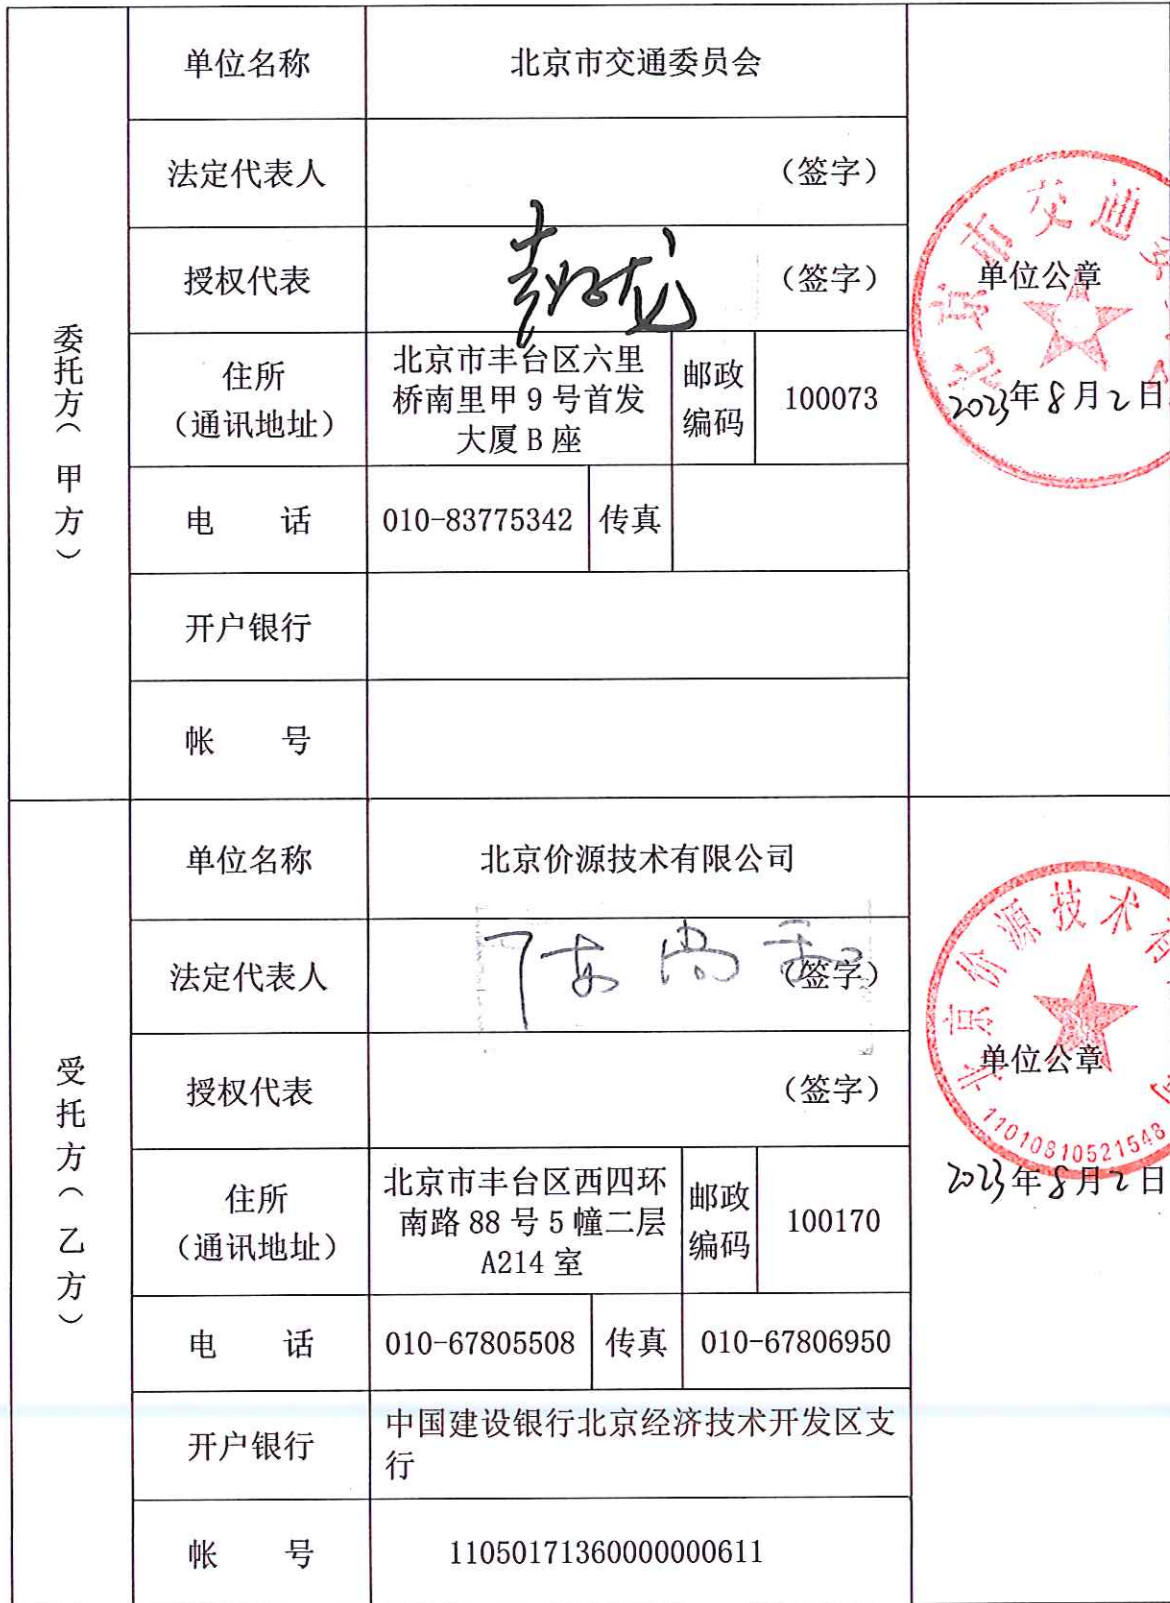 委托方（甲方）
单位名称
北京市交通委员会
法定代表人
（签字）
授权代表
（签字）
住所
（通讯地址）
北京市丰台区六里
桥南里甲9号首发
大厦B座
邮政
编码
100073
电 话
010-83775342
传真
开户银行
帐 号
北京市交通委
单位公章
2023年8月2日
受托方（乙方）
单位名称
北京价源技术有限公司
法定代表人
（签字）
授权代表
（签字）
住所
（通讯地址）
北京市丰台区西四环
南路88号5幢二层
A214室
邮政
编码
100170
电 话
010-67805508
传真
010-67806950
开户银行
中国建设银行北京经济技术开发区支
行
帐 号
11050171360000000611
北京价源技术有
司
单位公章
11010810521548
2023年8月2日